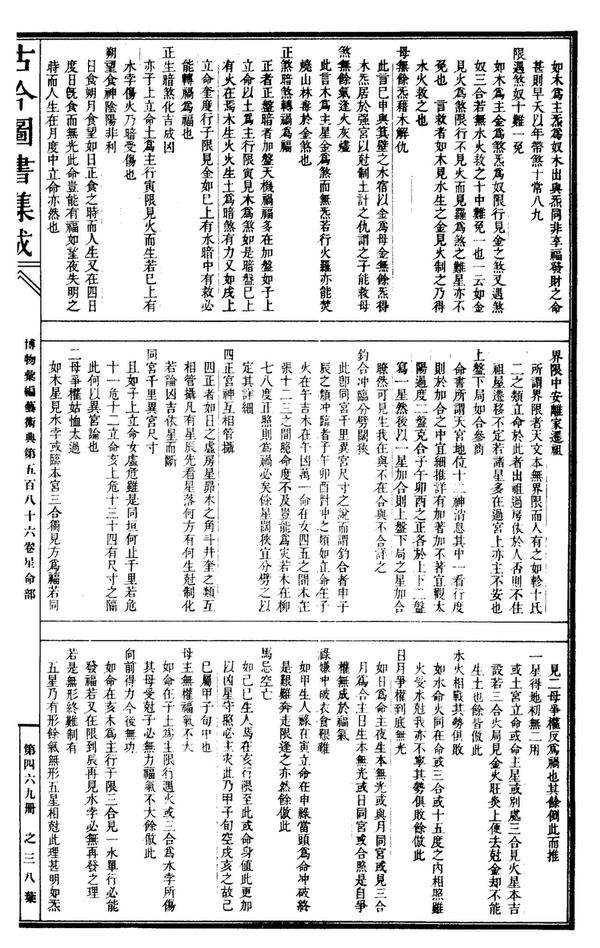 如木爲主炁爲奴木出與炁同非享福發財之命
甚則早夭以年帶煞十常八九
限遇煞奴十難一免
如木爲主金爲煞炁爲奴限行見金之煞又遇煞
奴三合若無水火救之十中難免一也一云如金
見火爲煞限行不見火而見羅爲煞之難星亦不
免也　言救者如木見水生之金見火制之乃得
水火救之也
母無餘炁藉木解仇
此言巳申與其壁之水宿以金爲母金無餘炁得
木炁居於强宮以尅制土計之仇謂之子能救母
煞無餘氣逢火灰燼
此言木爲主星金爲煞而無炁若行火羅亦能焚
燒山林毒於金煞也
正煞暗煞轉禍爲福
正者正盤暗者加盤天機禍福多在加盤如子上
立命以土爲主行限寅見木爲煞如是暗盤巳上
有火在焉木生火火生土爲暗煞有力又如戌上
立命奎度行子限見金如巳上有水暗中有救必
能轉禍爲福也
正生暗煞化吉成凶
亦子上立命土爲主行寅限見火而生若巳上有
水孛傷火乃暗受傷也
朔望食神陰陽非利
日食朔月食望如日正食之時而人生又在四日
度日旣食而無光此命豈能有福如望夜失明之
時而人生在月度中立命亦然也
界限中安離家遷祖
所謂界限者天文本無界限而人有之如軫十氐
二之類立命於此者出祖過房依於人否則不住
祖屋遷移不定若諸星多在過宮上亦主不安也
上盤下局如合參商
命書所謂天宮地位十二神消息其中一看行度
則於加合之中宜細推詳有加著加不著宜觀太
陽過度二盤克合子午卯酉之正各於上下二盤
寫一星然後以一星加合則上盤下局之星加合
瞭然可見生我在與不在合與不合詳之
鈞合冲臨分劈闊狹
此即同宮千里異宮尺寸之說而謂鈞合者申子
辰之類冲臨者子午卯酉對冲之類如立命在子
火在午吉木在午凶萬一命在女四五之間木在
張十二三之間腉命度不及豈能爲災若木在柳
七八度正照則爲禍必矣餘星闊狹宜分劈之以
定其詳細
四正宮神互相管攝
四正者如日之虛房星昴木之角斗井奎之類互
相管攝凡有星辰先看星落何方有何生尅制化
若論凶吉依星而斷
同宮千里異宮尺寸
且如子上立命女虛危雖是同垣何止千里若危
十一危十二立命亥上危十三十四有尺寸之隔
此何以異宮論也
二母爭權姑恤太過
如木星見水孛或臨本宮三合獨見方爲福若同
見二母爭權反爲禍也其餘倒此而推
一星得地初無二用
或土宮立命或命主星或別處三合見火星本吉
設若三合火局見金火旺炎上便去尅金却不能
生土也餘皆倣此
水火相戰其勢俱敗
如水命火同在命或三合或十五度之內相照雖
火受水尅我亦不寧其勢俱敗餘倣此
日月爭權到底無光
如日爲命主夜生本無光或與月同宮或見三合
月爲命主日生本無光或日同宮或合照是自爭
權無成於福氣
祿嫌中破衣食艱難
如甲生人祿在寅立命在申祿當頭爲命冲破終
是艱難奔走限逢之亦然餘倣此
馬忌空亡
如己巳生人馬在亥行限至此或命身値此更加
以凶星守照必主灾此乃甲子旬空戌亥之故己
巳屬甲子旬中也
母主無權福氣不大
如命在子土爲主限行遇火或三合爲水孛所傷
其母受尅子必無力福氣不大餘倣此
向前得力今後無功
如命在亥木爲主行子限三合見一水單行必能
發福若又在限到辰再見水孛必無再發之理
若是無形終難制有
五星乃有形餘氣無形五星相尅此理甚明如炁
古今圖書集成
博物彙編藝術典第五百八十六卷星命部
第四六九册　之三八葉